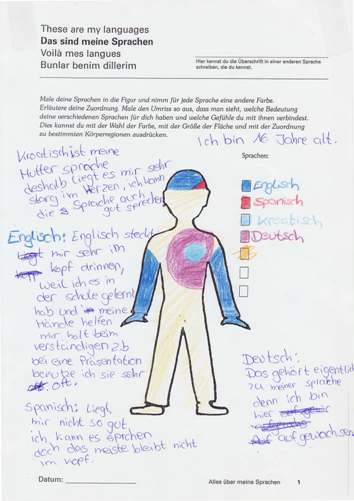 These are my languages
Das sind meine Sprachen
Voilà mes langues
Bunlar benim dillerim
Hier kannst du die Überschrift in einer anderen Sprache
schreiben, die du kennst.
Male deine Sprachen in die Figur und nimm für jede Sprache eine andere Farbe.
Erläutere deine Zuordnung. Male den Umriss so aus, dass man sieht, welche Bedeutung
deine verschiedenen Sprachen für dich haben und welche Gefühle du mit ihnen verbindest.
Dies kannst du mit der Wahl der Farbe, mit der Größe der Fläche und mit der Zuordnung
zu bestimmten Körperregionen ausdrücken.
Ich bin 16 Jahre alt.
Kroatisch ist meine
Mutter sprache
deshalb liegt es mir sehr
im Herzen, ich kann
die Sprache auch
gut sprechen
Sprachen:
Englisch
Spanisch
Kroatisch
Deutsch
Englisch: Englisch steckt
mir sehr im
kopf drinnen,
weil ich es in
der schule gelernt
hab und meine
Hände helfen
mir halt beim
verständigen zb
bei eine Präsentation
benutze ich sie sehr
oft.
Spanisch: Liegt
mir nicht so gut,
ich kann es sprchen
doch das meiste bleibt nicht
im kopf.
Deutsch:
Das gehört eigentlich
zu meiner sprache
denn ich bin
hier
auf gewachsen
Datum:
Alles über meine Sprachen 1